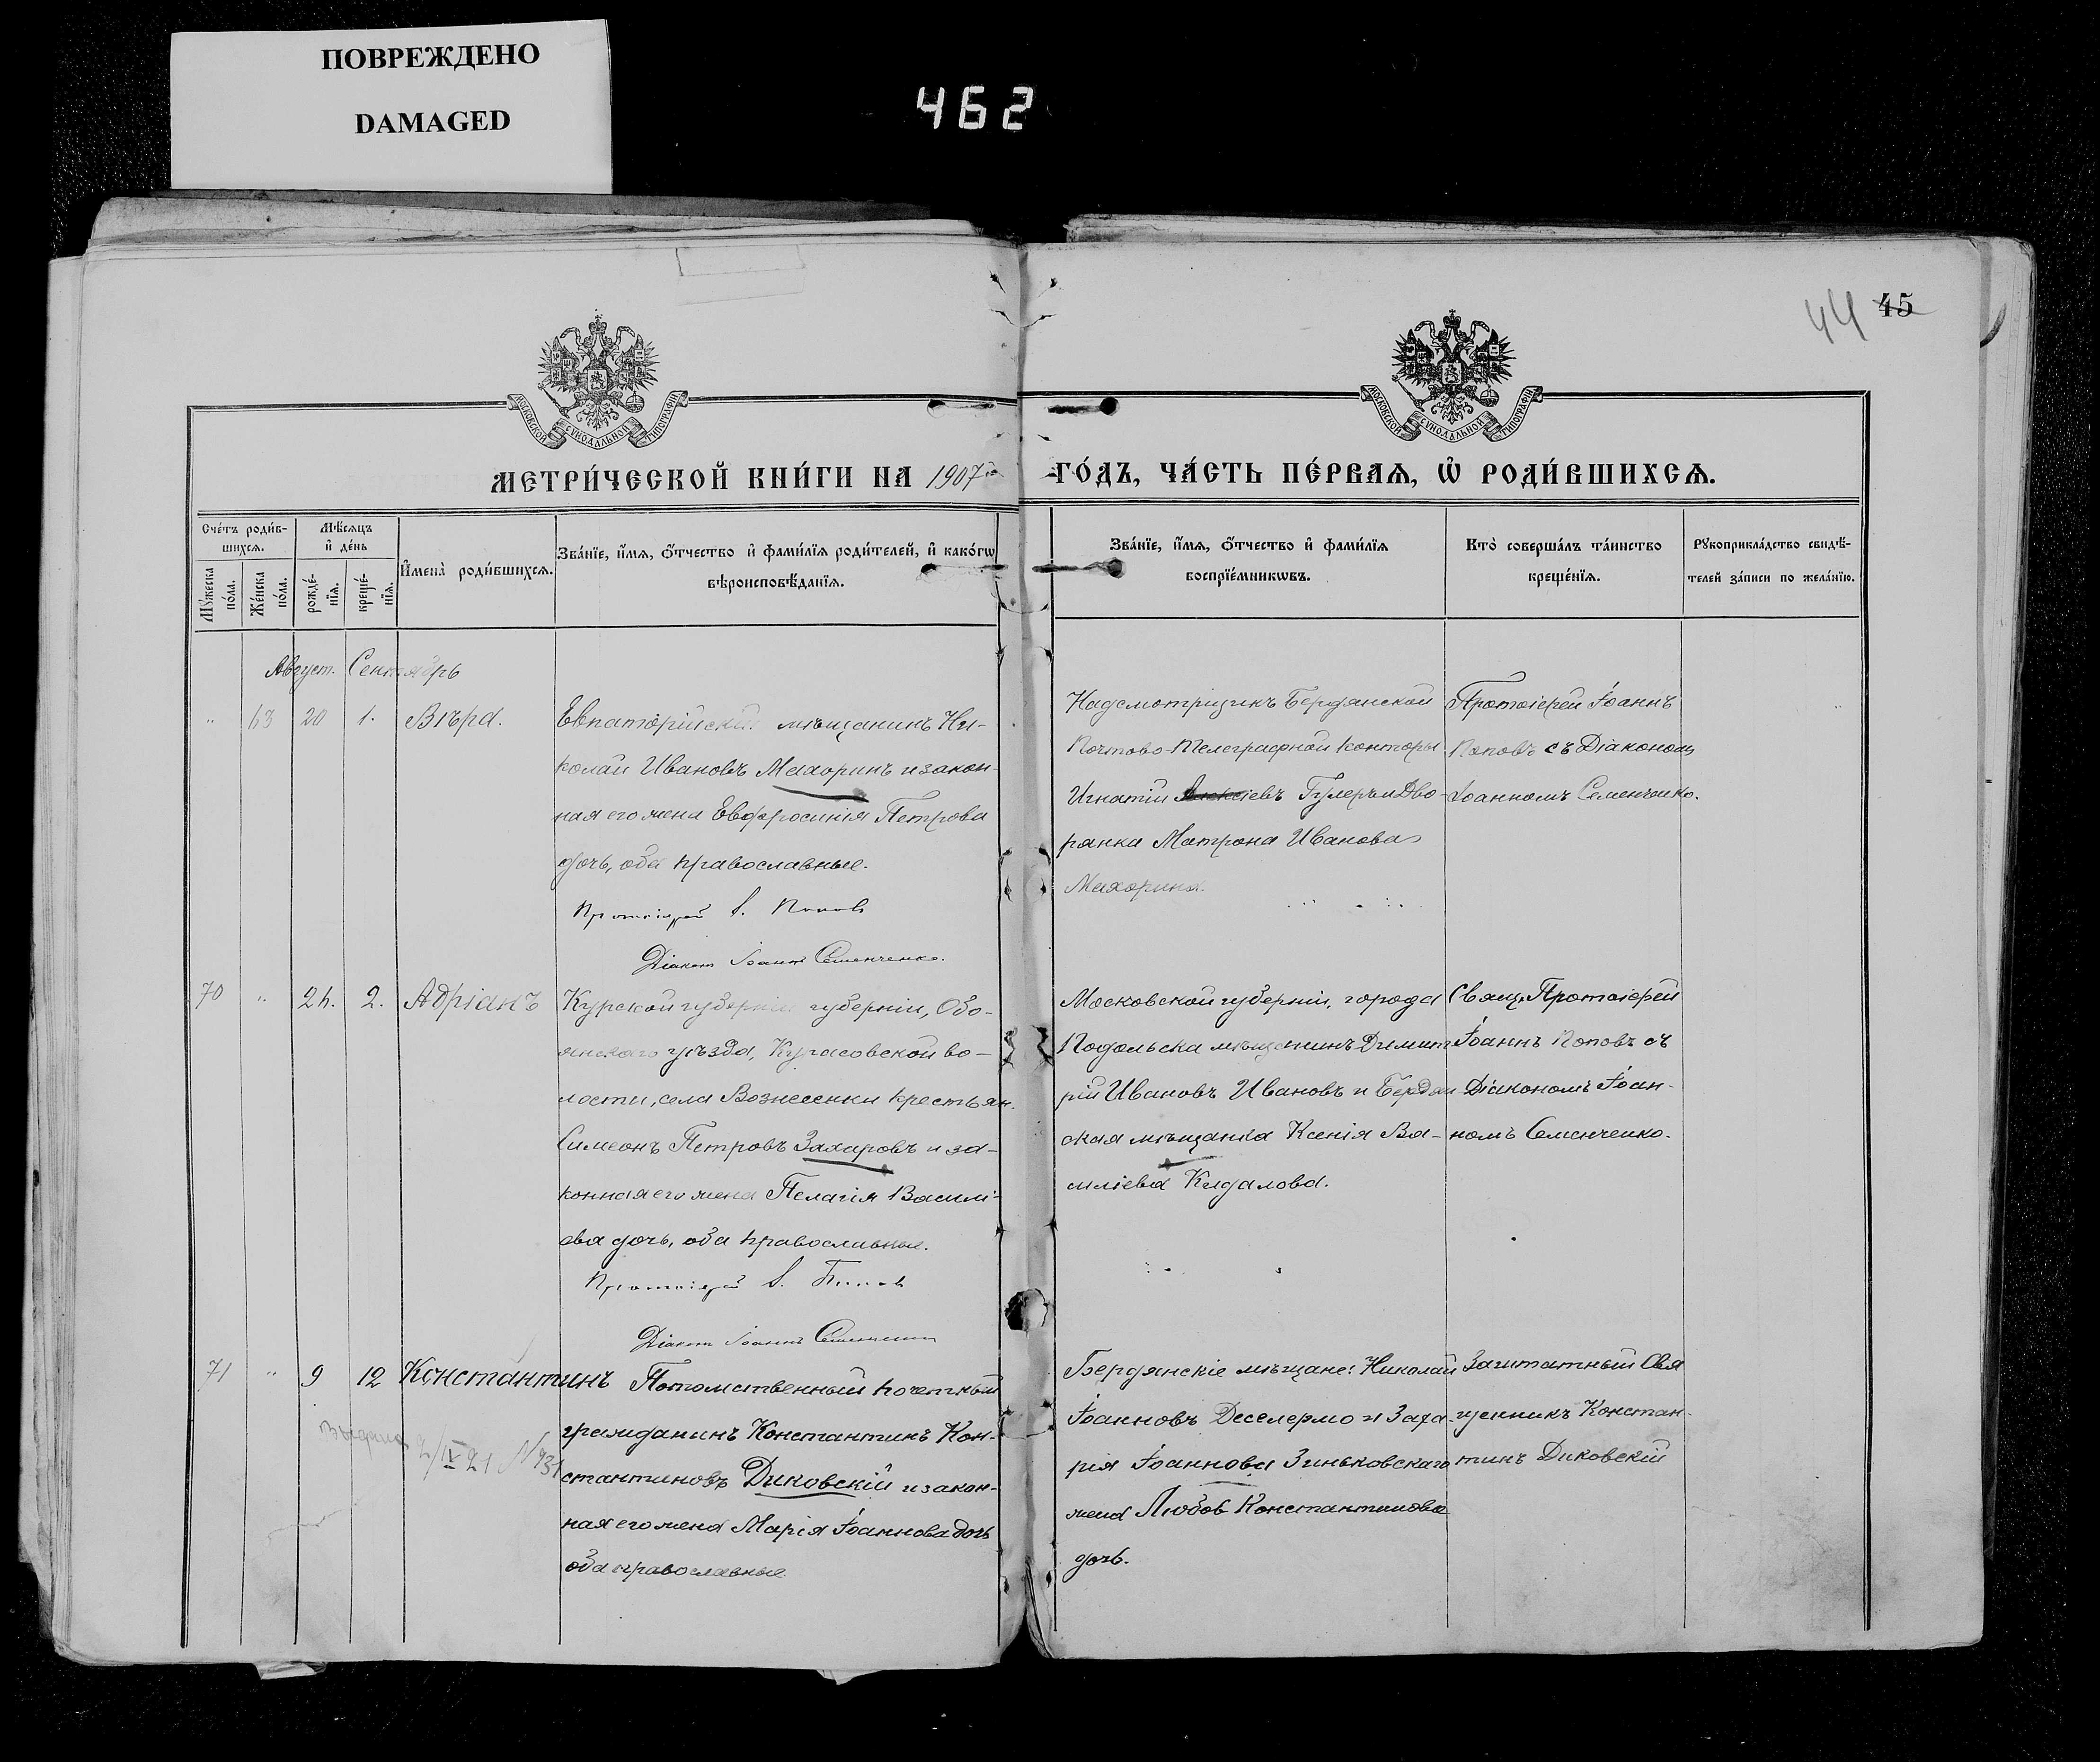 ПОВРЕЖДЕНО
DAMAGED
462
44 45
МОСКОВСКОЙ СѴНОДАЛЬНОЙ ТИПОГРАФІИ
МОСКОВСКОЙ СѴНОДАЛЬНОЙ ТИПОГРАФІИ
МЕТРИ́ЧЕСКОЙ КНИ́ГИ НА 1907
ГО́ДЪ, ЧА́СТЬ ПЕ́РВАѦ, Ѡ҆ РОДИ́ВШИХСѦ.
Сче́тъ роди́в-
шихсѧ.
Мѣ́сѧцъ
и҆ де́нь
Му́жеска
по́ла.
Же́нска
по́ла.
рожде́-
нїѧ.
креще́-
нїѧ.
И҆мена̀ роди́вшихсѧ.
Зва́нїе, и҆́мѧ, ѻ҆́тчество и҆ фами́лїѧ роди́телей, и҆ како́гѡ
вѣроисповѣ́данїѧ.
Зва́нїе, и҆́мѧ, ѻ҆́тчество и҆ фами́лїѧ
воспрїе́мникѡвъ.
Кто̀ соверша́лъ та́инство
креще́нїѧ.
Рꙋкоприкла́дство свидѣ́-
телей за́писи по жела́нїю.
Август. Сентябрь
" 63 20 1. Вѣра.
Евпаторійскій мѣщанинъ Ни-
колай Ивановъ Махоринъ и закон-
ная его жена Евфросинія Петрова
дочь, оба православные.
Протоіерей І. Попов
Діакон Іоаннъ Семенченко.
Надсмотрщикъ Бердянской
Почтово-Телеграфной Конторы
Игнатій Алексіевъ Гулеръ и Дво-
рянка Матрона Иванова
Махорина.
Протоіерей Іоаннъ
Поповъ съ Діакономъ
Іоанномъ Семенченко.
70 " 26. 2. Адріанъ
Курской губерніи губерніи, Обо-
янскаго уѣзда, Курасовской во-
лости, села Вознесенки крестьян.
Симеонъ Петровъ Захаровъ и за-
конная его жена Пелагія Василі-
ева дочь, оба православные.
Протоіерей І. Попов
Діакон Іоаннъ Семенченко
Московской губерніи, города
Подольска мѣщанинъ Димит
рій Ивановъ Ивановъ и Бердян
ская мѣщанка Ксенія Ва-
силіева Кидалова.
Свящ. Протоіерей
Іоаннъ Поповъ съ
Діакономъ Іоан-
номъ Семенченко.
71 " 9 12 Константинъ
2/IV 21 N 931
Потомственный почетный
гражданинъ Константинъ Кон-
стантиновъ Диковскій и закон-
ная его жена Марія Іоаннова дочь
оба православные
Бердянскіе мѣщане: Николай
Іоанновъ Деселермо и Заха-
рія Іоаннова Зиньковскаго
жена Любовь Константинова
дочь.
Заштатный Свя
щенникъ Констан-
тинъ Диковскій